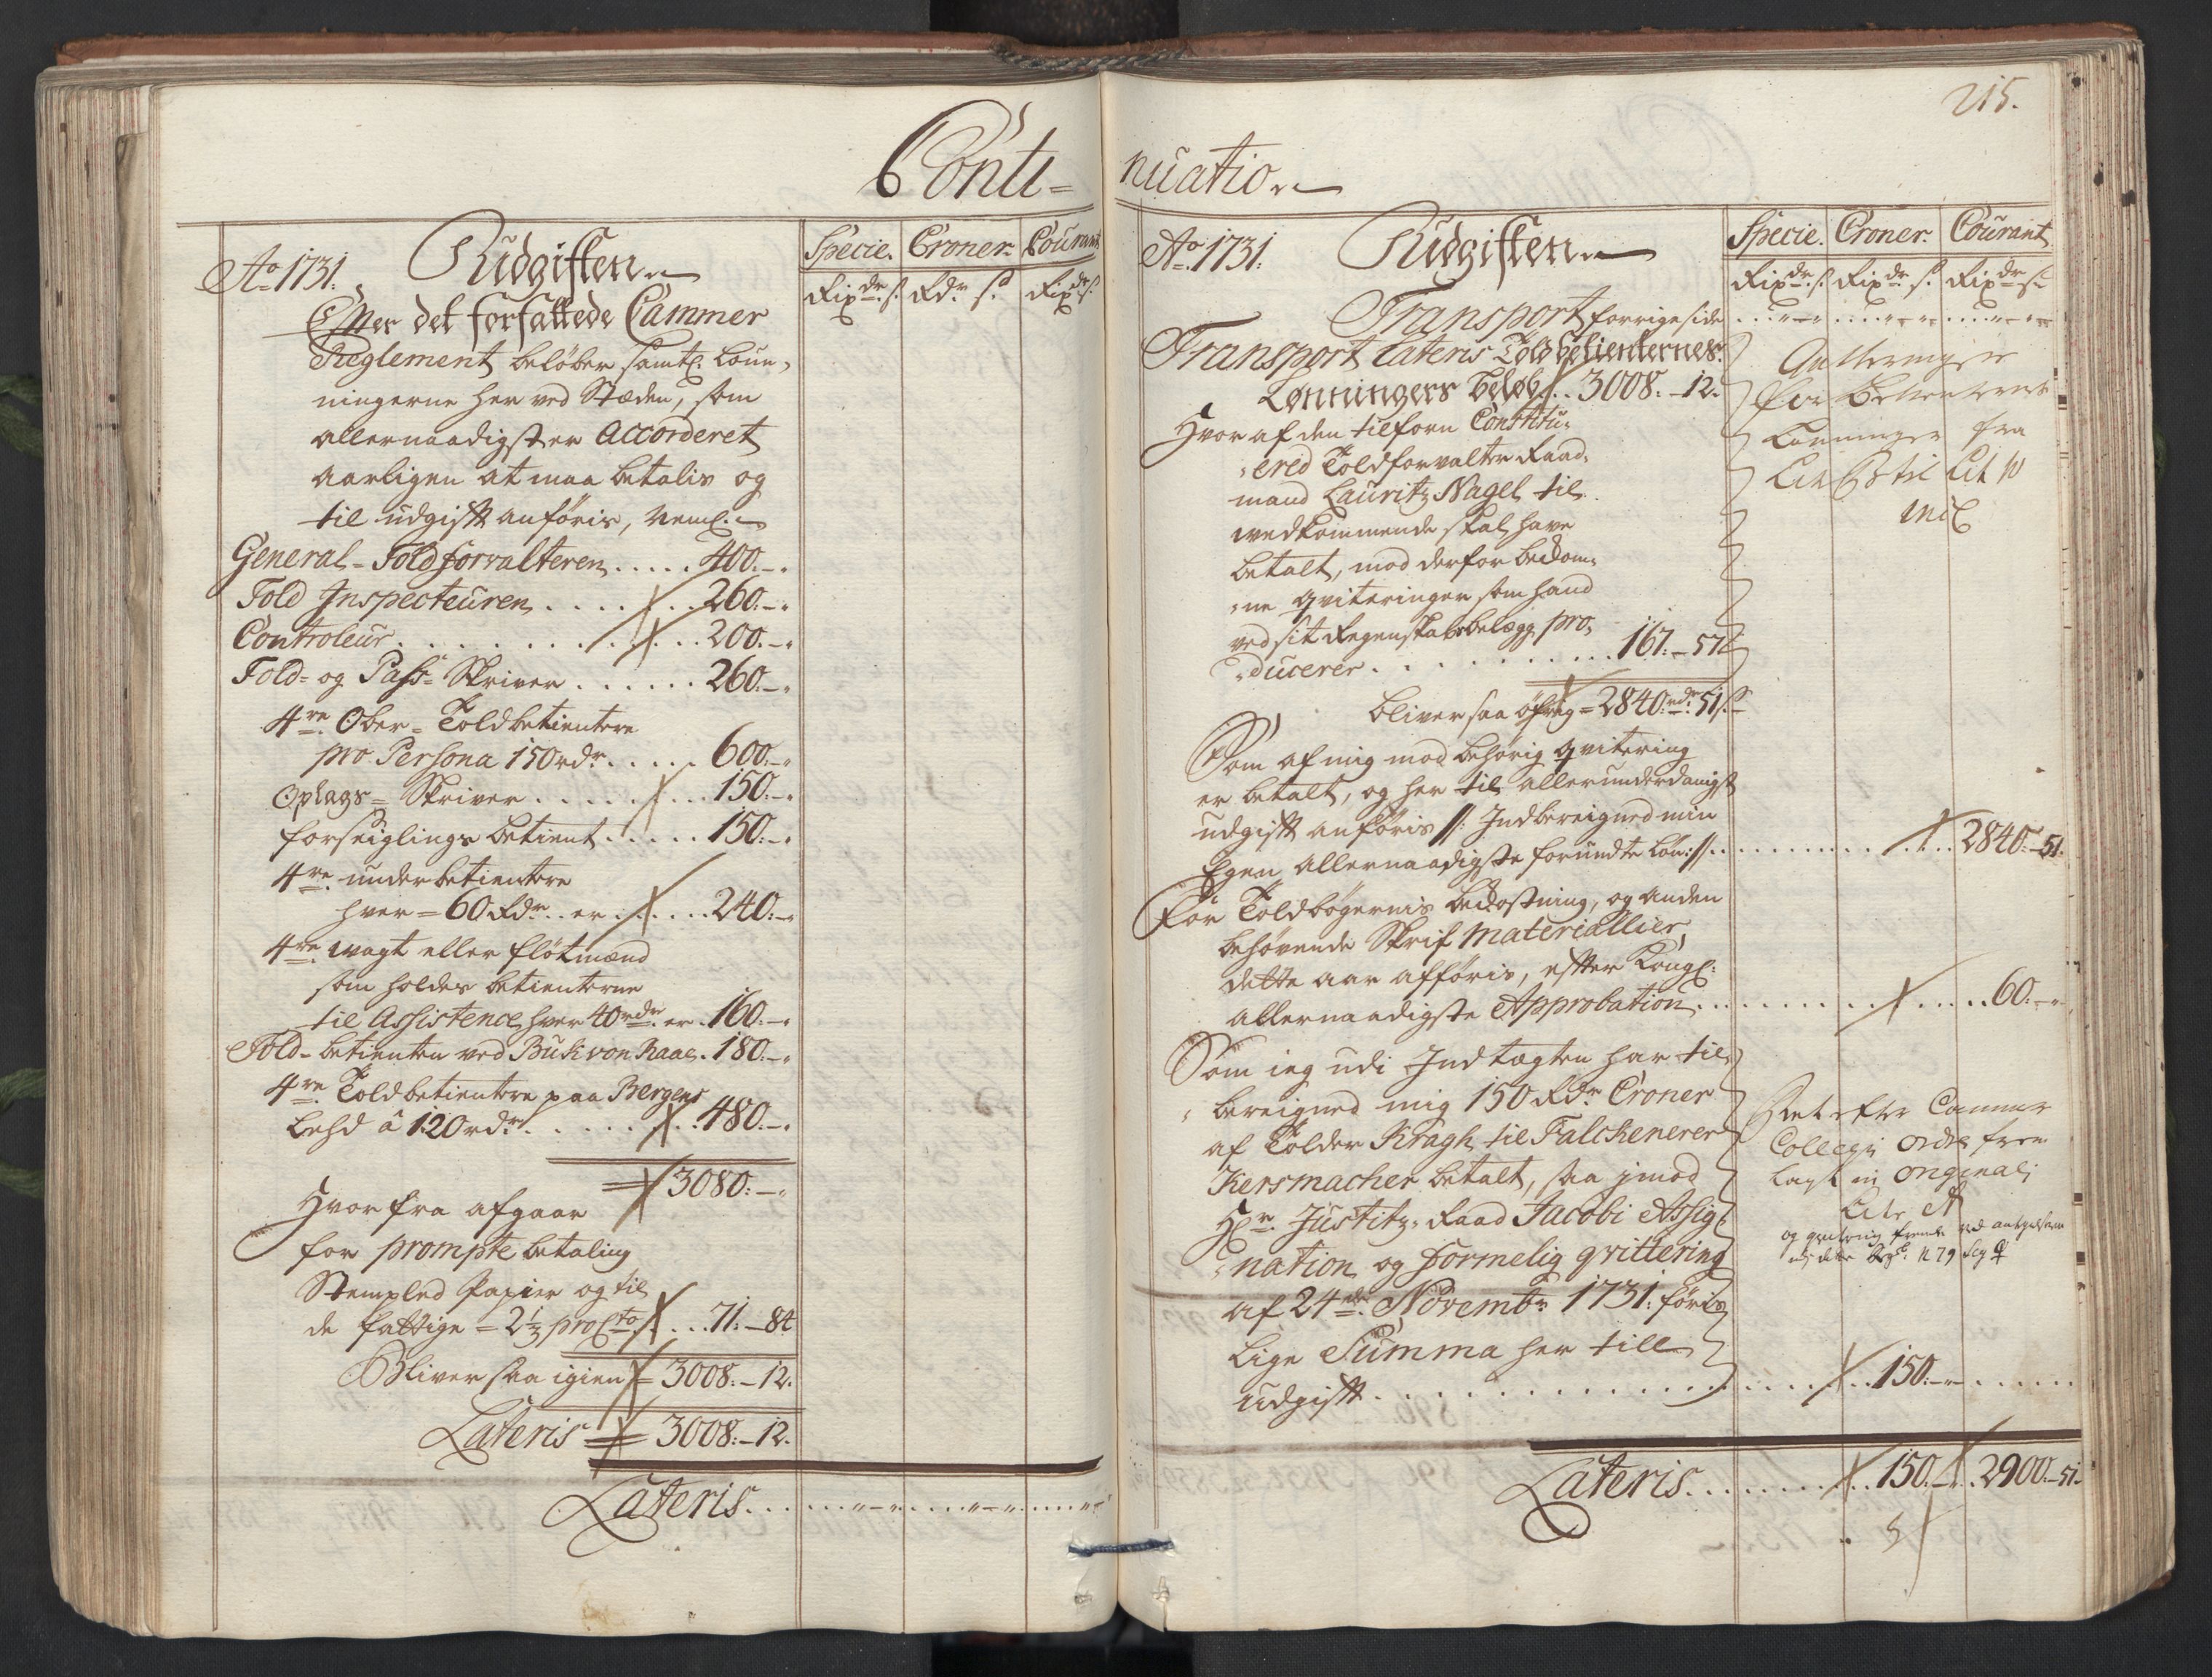 Conti=
Ao 1731. Udgiften
Specie. Croner. Courant
Rixdr. s. Rdr. s. Rixdr. s.
Efter det forfattede Cammer
Reglement beløber samtl. Løn,
ningerne her ved Stæden, som
allernaadigst er Accorderet
aarligen at maa betalis og
til udgift anføris, neml.
General-Toldforvalteren ..... 400.-.
Told Inspecteuren ..... 260.-.
Controleur ..... 200.-.
Told- og Pass-Skriver ...... 260.-.
4re Ober-Toldbetientere
pro Persona 150 rdr. .... 600.-.
Oplags-Skriver ..... 150.-.
forseiglings betient ..... 150.-.
4re under betientere
hver = 60 Rdr. er ..... 240.-.
4re vagt eller fløtmænd
som holdes betienterne
til Assistence hver 40 rdr. er . 160.-.
Told-betienten ved Buk von Raae . 180.-.
4re Toldbetientere paa Bergens
Lehd â 120 rdr. ..... 480.-.
3080.-.
Hvorfra afgaar
for prompte betaling
Stempled Papier og til
de fattige = 2 1/3 pro Cto ... 71.-84
Bliver saa igien = 3008.-12.
Lateris = 3008.-12.
Lateris. . .
215.
nuatio
Ao 1731. Udgiften
Specie. Croner. Courant
Rixdr. s. Rixdr. s. Rixdr. s.
Transport forrige side
Transport Lateris Toldbetienternes
Lønningers beløb .. 3008.-12.
Hvoraf den tilforn Constitu-
-ered Toldforvalter Raad-
mand Lauritz Nagel til
vedkommende skal have
betalt, mod derfor bekom-
-ne qviteringer som hand
ved sit Regenskabsbelegg pro-
-ducerer ......... 167.-57
for Betienternes
Lønninger fra
Lit til Lit
incl
bliver saa øfrig = 2840 rdr. 51 s.
Som af mig mod behørig qvitering
er betalt, og her til allerunderdanigst
udgift anføris //: Indbereigned min
Egen allernaadigste forundte løn :// ..... 2840.-51.
For Toldbøgernis bekostning, og anden
behøvende Skrif Materiallier
dette aar afføris, efter Kongl.
allernaadigste Approbation ..... 60.-.
Som ieg udi Indtægten har til
bereigned mig 150 Rdr. Croner
af Tolder Kragh til Falckenerer
Kersmacher betalt, saa imod
Hr. Justitz-Raad Jacobi Assig-
-nation og formelig qvittering
af 24de Novembr. 1731. føris
lige Summa her till
udgift ..... 150.-.
efter Cammer
Collegii Ordre frem
lagt in originali
Lit A
Lateris ..... 150.-. 2900.-51.